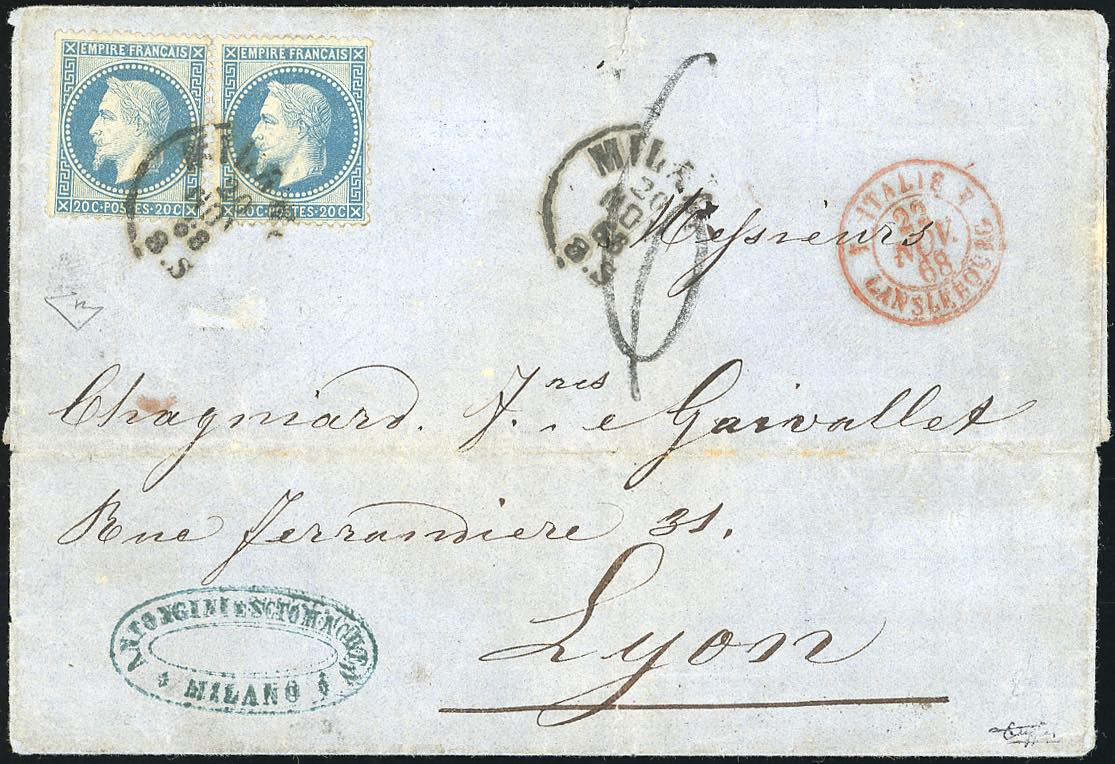 EMPIRE FRANÇAIS
20 C - POSTES - 20 C
EMPIRE FRANÇAIS
20 C - POSTES - 20 C
MILA
20
NO
68
8. S
MILA
20
NO
68
8. S
6
ITALIE
22
NOV.
68
LANSLEBOURG
Messieurs
Chagniard. F.res e Gaivallet
Rue Ferrandiere 31.
Lyon
MILANO